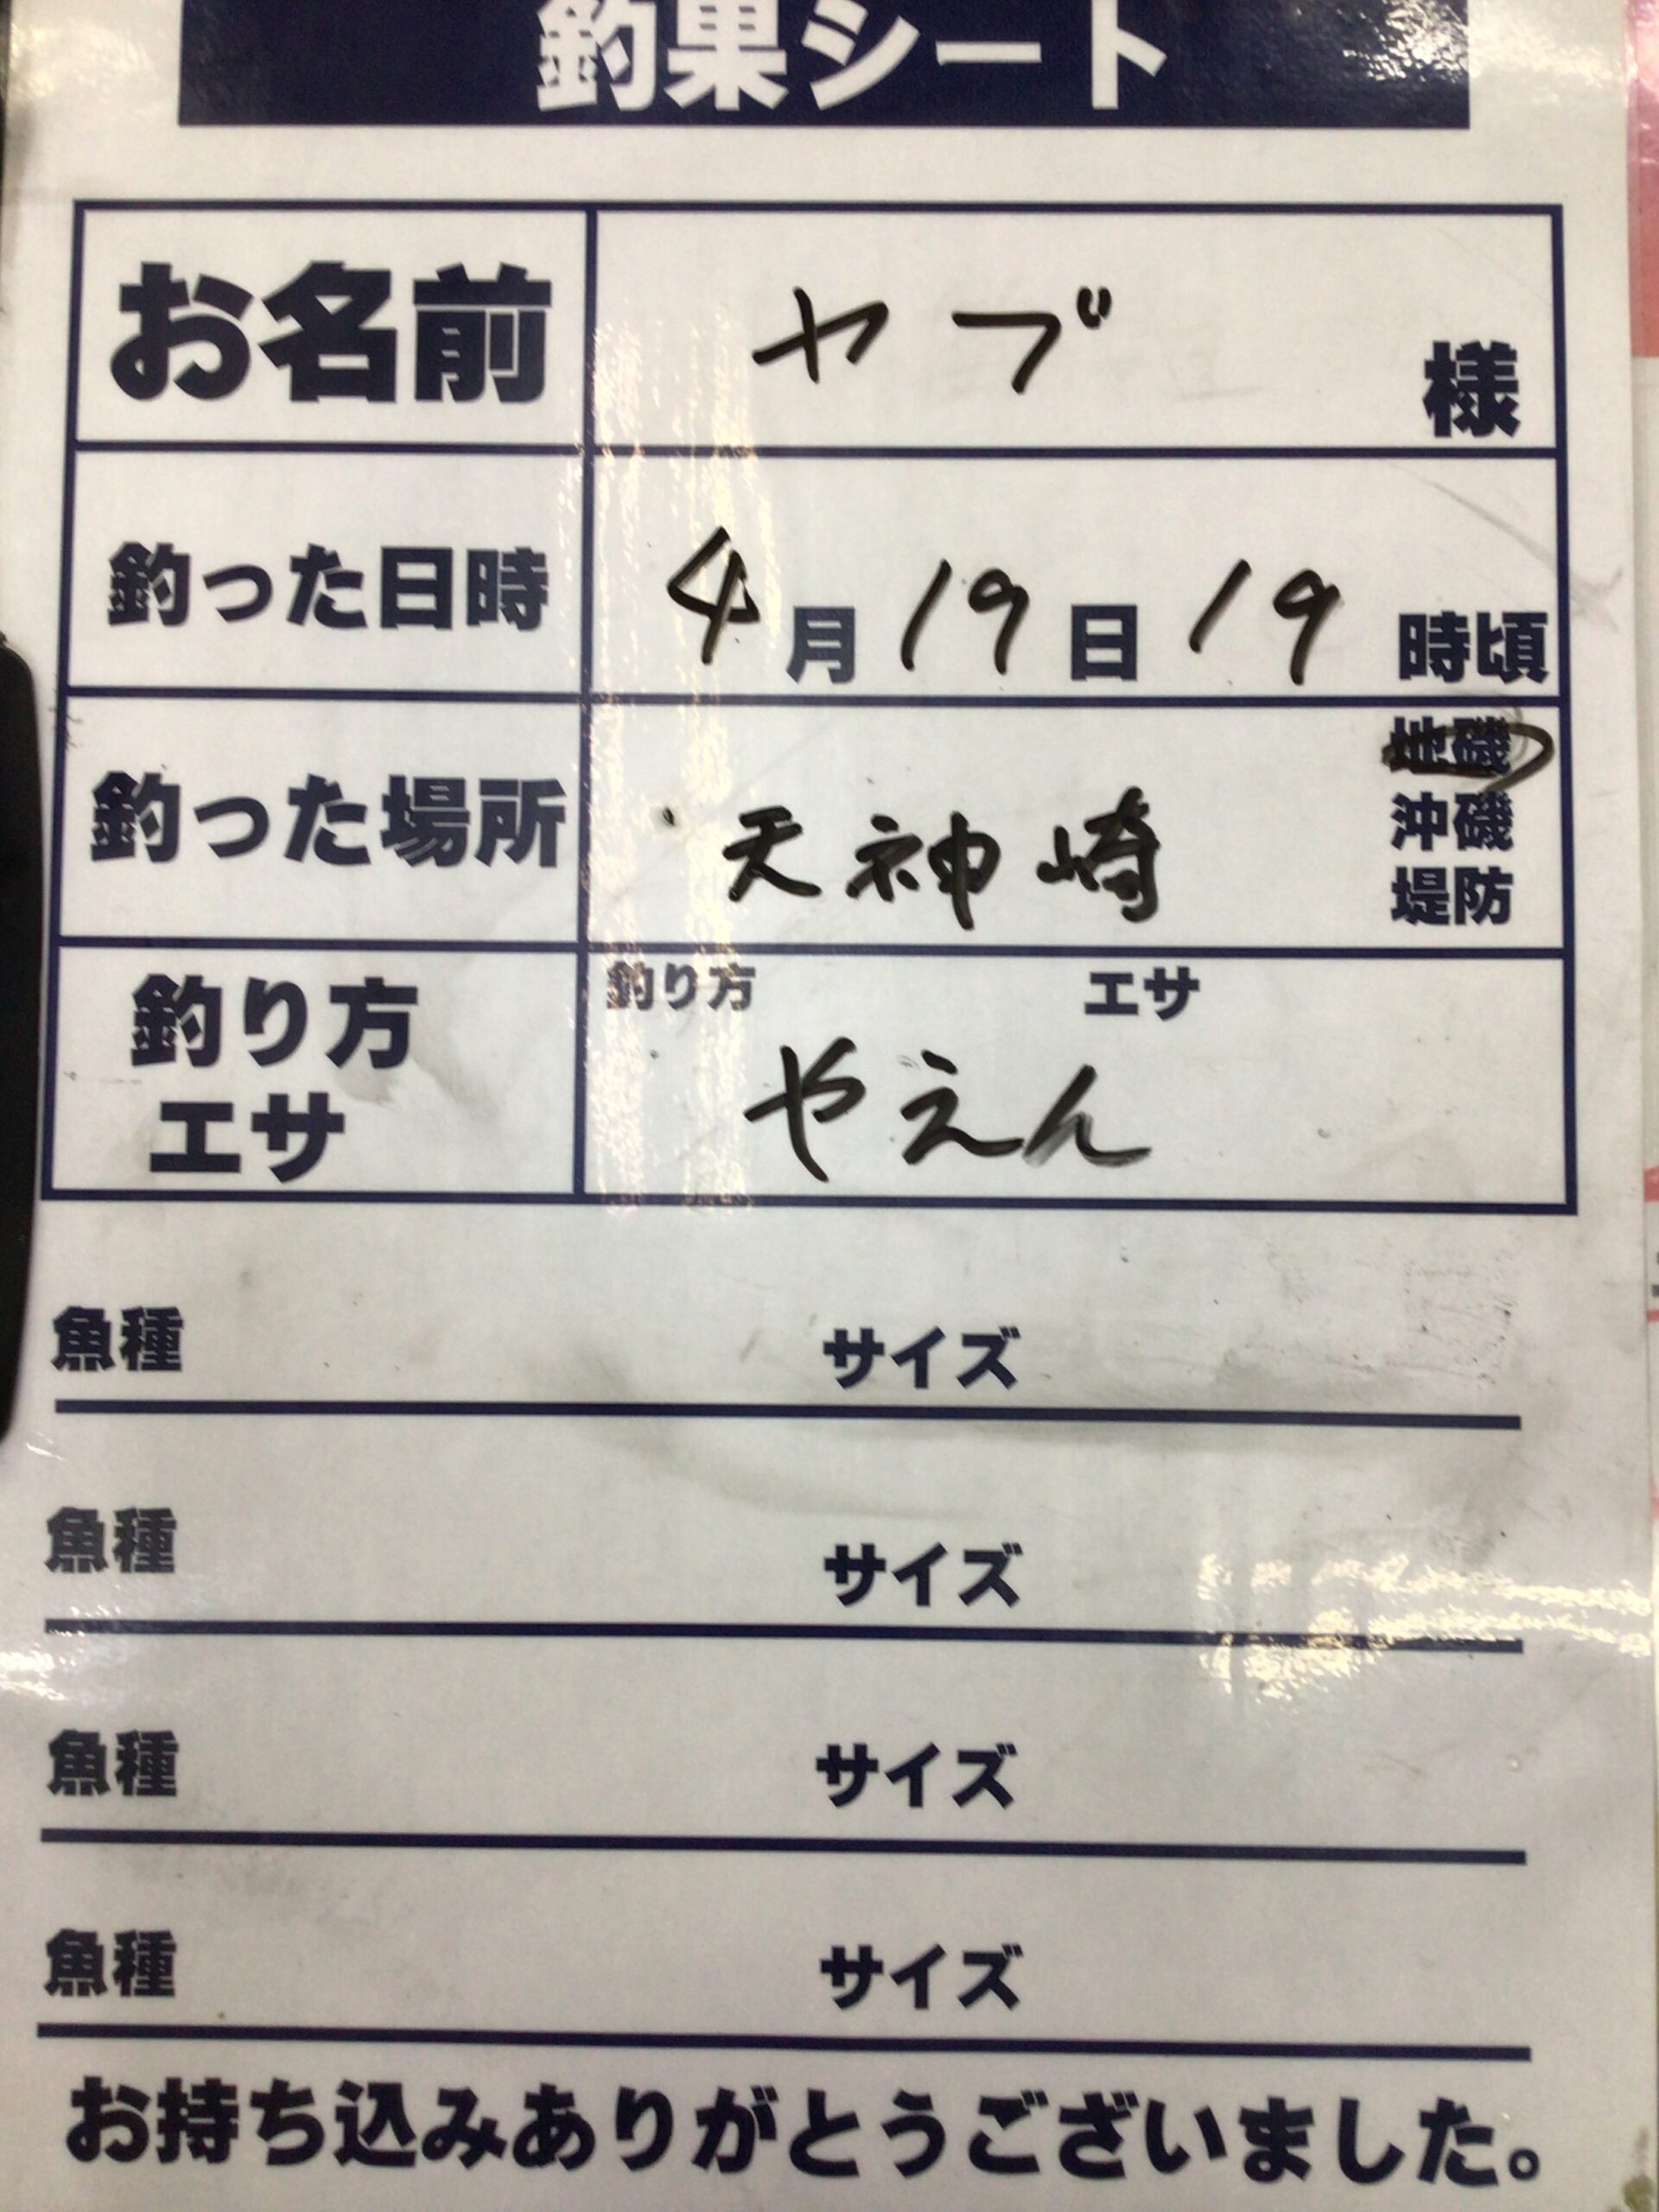 釣果シート
お名前 ヤブ 様
釣った日時 4月19日19時頃
釣った場所 天神崎 地磯
沖磯
堤防
釣り方 エサ
釣り方
エサ
やえん
魚種 サイズ
魚種 サイズ
魚種 サイズ
魚種 サイズ
お持ち込みありがとうございました。